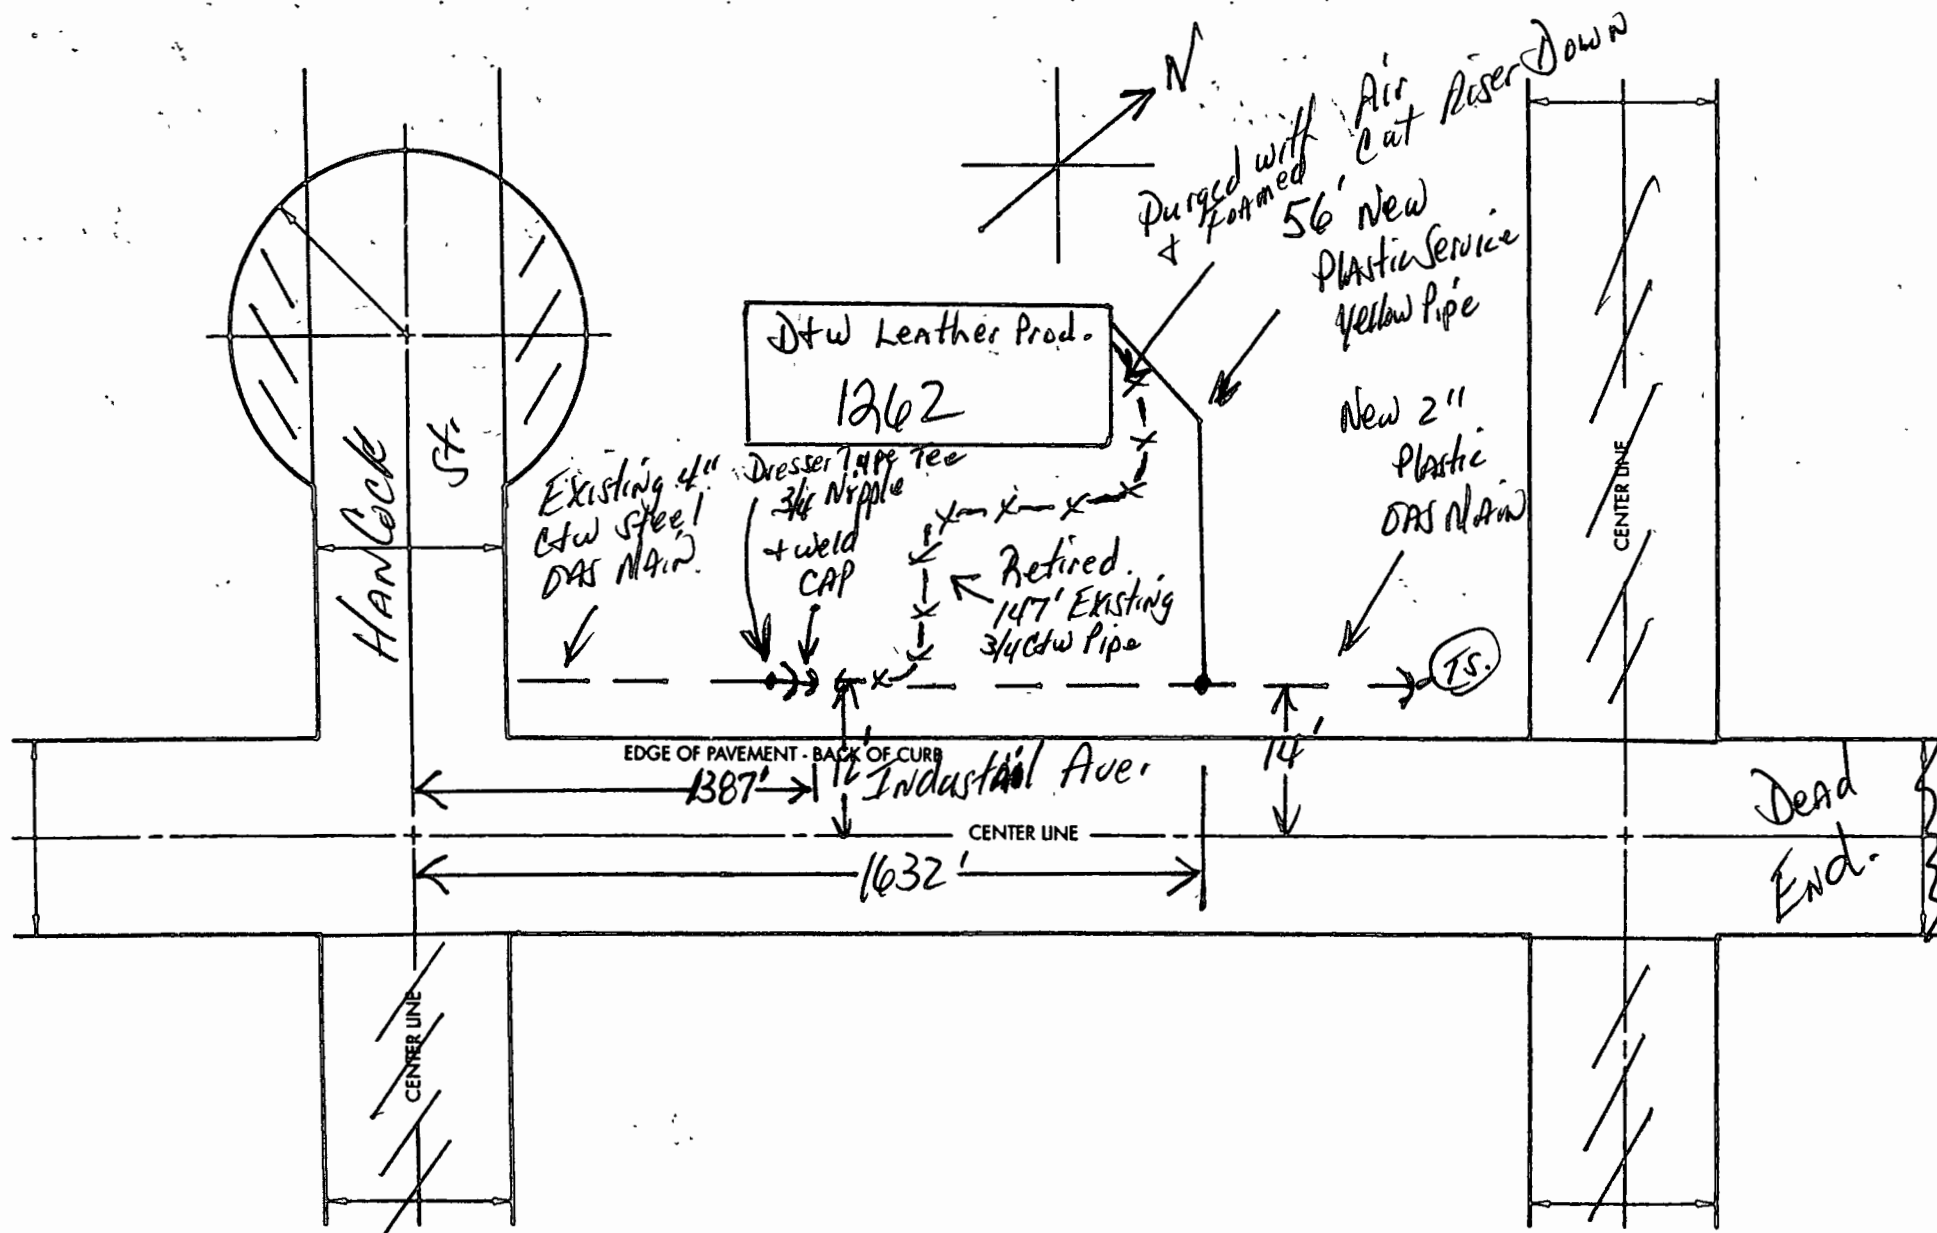 N
Purged with Air
& Foamed Cut Riser Down
56' New
Plastic Service
Yellow Pipe
D+W Leather Prod.
1262
New 2"
Plastic
GAS MAIN
CENTER LINE
HANCOCK St.
Existing 4"
C+W Steel
GAS MAIN.
Dresser Type Tee
3/4 Nipple
+ Weld
CAP
Retired.
147' Existing
3/4 C+W Pipe
T.S.
EDGE OF PAVEMENT - BACK OF CURB
1387'
12'
Industrial Ave.
14'
Dead
End.
CENTER LINE
1632'
CENTER LINE